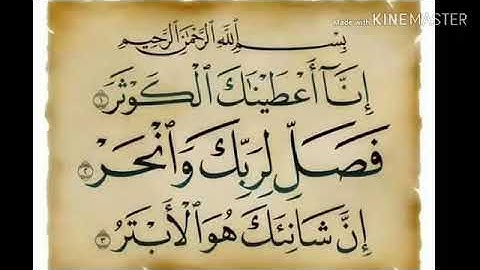 Made with KINEMASTER
بِسْمِ ٱللَّهِ ٱلرَّحْمَٰنِ ٱلرَّحِيمِ
إِنَّآ أَعْطَيْنَٰكَ ٱلْكَوْثَرَ ١
فَصَلِّ لِرَبِّكَ وَٱنْحَرْ ٢
إِنَّ شَانِئَكَ هُوَ ٱلْأَبْتَرُ ٣